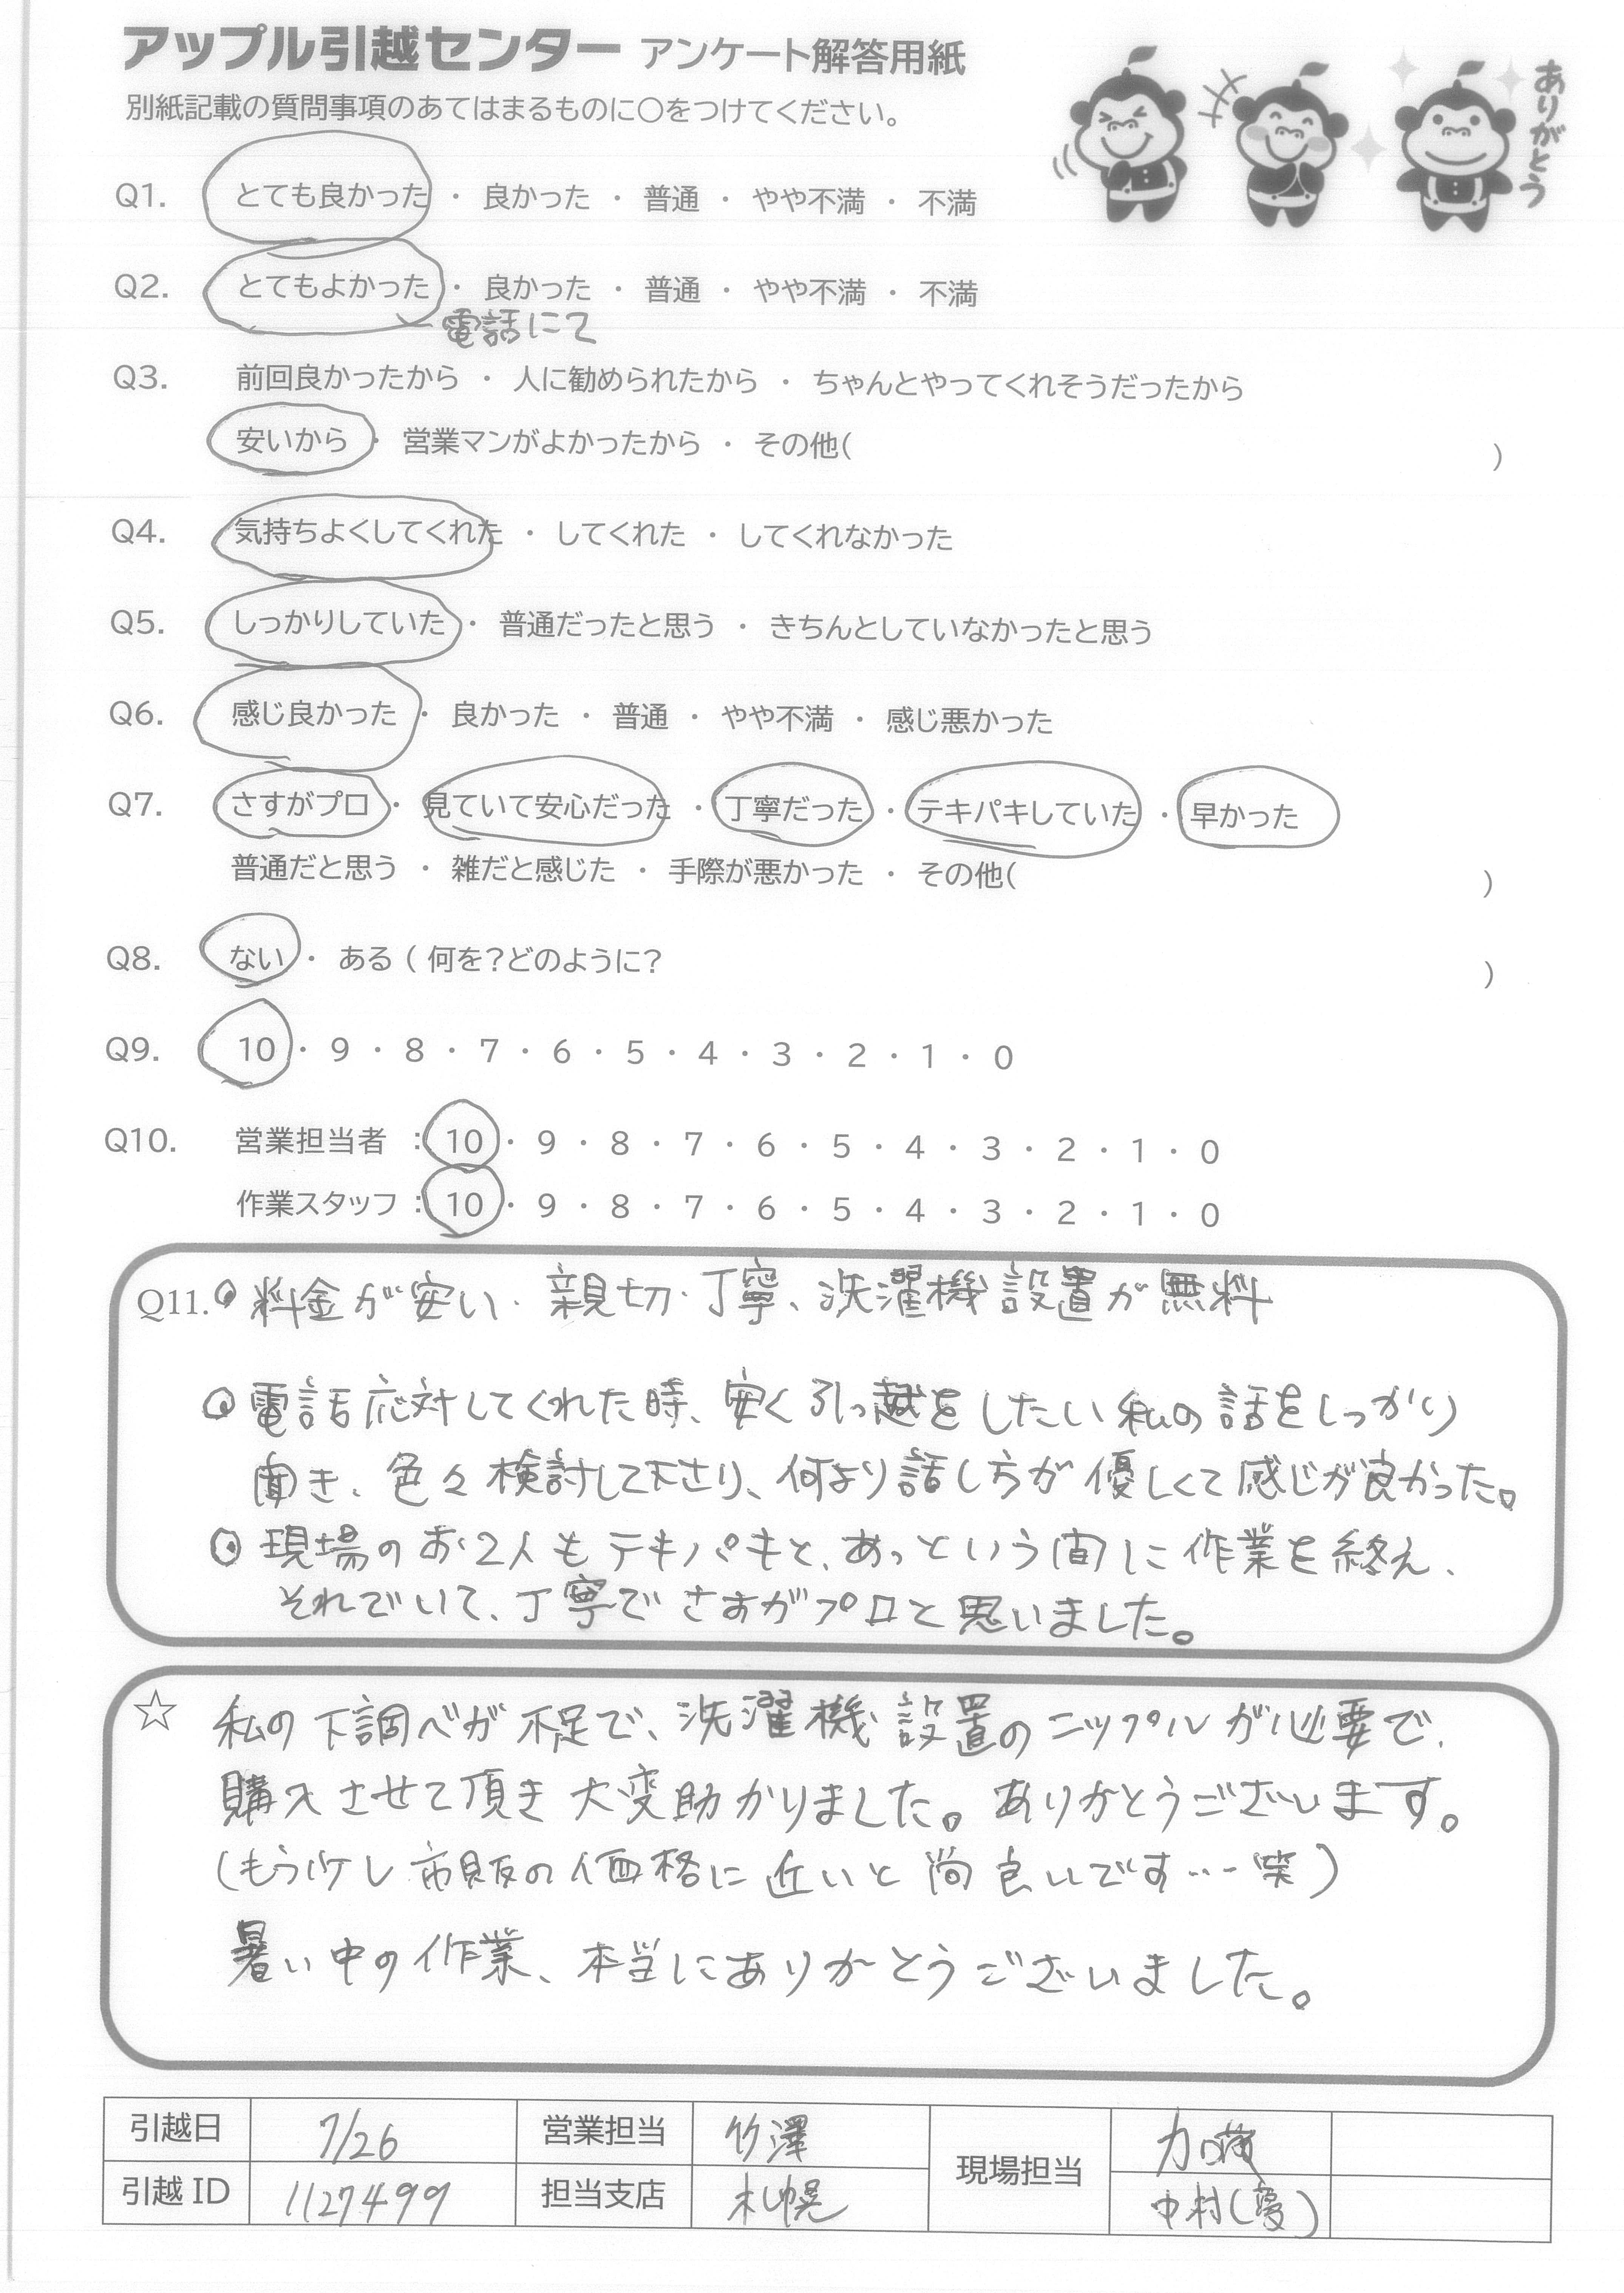 アップル引越センター アンケート解答用紙
別紙記載の質問事項のあてはまるものに〇をつけてください。
ありがとう
Q1. とても良かった ・ 良かった ・ 普通 ・ やや不満 ・ 不満
Q2. とてもよかった ・ 良かった ・ 普通 ・ やや不満 ・ 不満
電話にて
Q3. 前回良かったから ・ 人に勧められたから ・ ちゃんとやってくれそうだったから
安いから ・ 営業マンがよかったから ・ その他( )
Q4. 気持ちよくしてくれた ・ してくれた ・ してくれなかった
Q5. しっかりしていた ・ 普通だったと思う ・ きちんとしていなかったと思う
Q6. 感じ良かった ・ 良かった ・ 普通 ・ やや不満 ・ 感じ悪かった
Q7. さすがプロ ・ 見ていて安心だった ・ 丁寧だった ・ テキパキしていた ・ 早かった
普通だと思う ・ 雑だと感じた ・ 手際が悪かった ・ その他( )
Q8. ない ・ ある ( 何を?どのように? )
Q9. 10 ・ 9 ・ 8 ・ 7 ・ 6 ・ 5 ・ 4 ・ 3 ・ 2 ・ 1 ・ 0
Q10. 営業担当者 : 10 ・ 9 ・ 8 ・ 7 ・ 6 ・ 5 ・ 4 ・ 3 ・ 2 ・ 1 ・ 0
作業スタッフ : 10 ・ 9 ・ 8 ・ 7 ・ 6 ・ 5 ・ 4 ・ 3 ・ 2 ・ 1 ・ 0
Q11. ◎ 料金が安い・親切・丁寧、洗濯機設置が無料
◎ 電話応対してくれた時、安く引っ越をしたい私の話をしっかり
聞き、色々検討して下さり、何より話し方が優しくて感じが良かった。
◎ 現場のお2人もテキパキと、あっという間に作業を終え、
それでいて、丁寧でさすがプロと思いました。
☆ 私の下調べが不足で、洗濯機設置のニップルが必要で、
購入させて頂き大変助かりました。ありがとうございます。
(もう少し市販の価格に近いと尚良いです…笑)
暑い中の作業、本当にありがとうございました。
引越日 7/26 営業担当 竹澤 現場担当 加藤
引越ID 1127499 担当支店 札幌 中村(優)